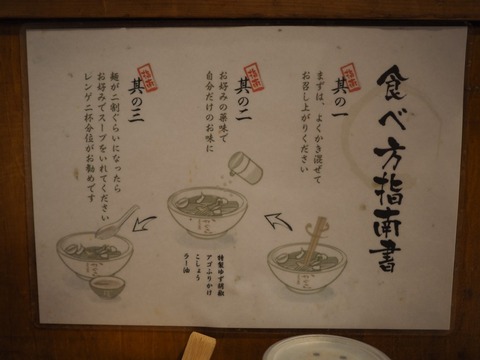 食べ方指南書
指南
其の一
まずは、よくかき混ぜて
お召し上がりください
指南
其の二
お好みの薬味で
自分だけのお味に
特製ゆず胡椒
アゴふりかけ
こしょう
ラー油
指南
其の三
麺が二割ぐらいになったら
お好みでスープをいれてください
レンゲ二杯分位がお勧めです